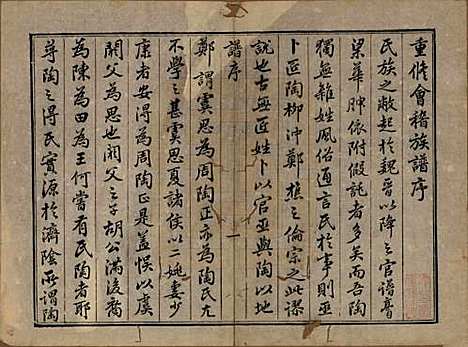 重修會稽族譜序
氏族之敝起於魏晉以降之官譜膏
梁華腴依附假託者多矣而吾陶
獨無雜姓風俗通言氏於事則巫
卜匠陶柳沖鄭樵之倫宗之此謬
說也古無匠姓卜以官巫與陶以地
譜序
一
鄭謂虞思為周陶正亦為陶氏尤
不學之甚虞思夏諸侯以二姚妻少
康者安得為周陶正是蓋悞以虞
閼父為思也閼父之子胡公滿後裔
為陳為田為王何嘗有氏陶者耶
尋陶之得氏實源於濟陰所謂陶